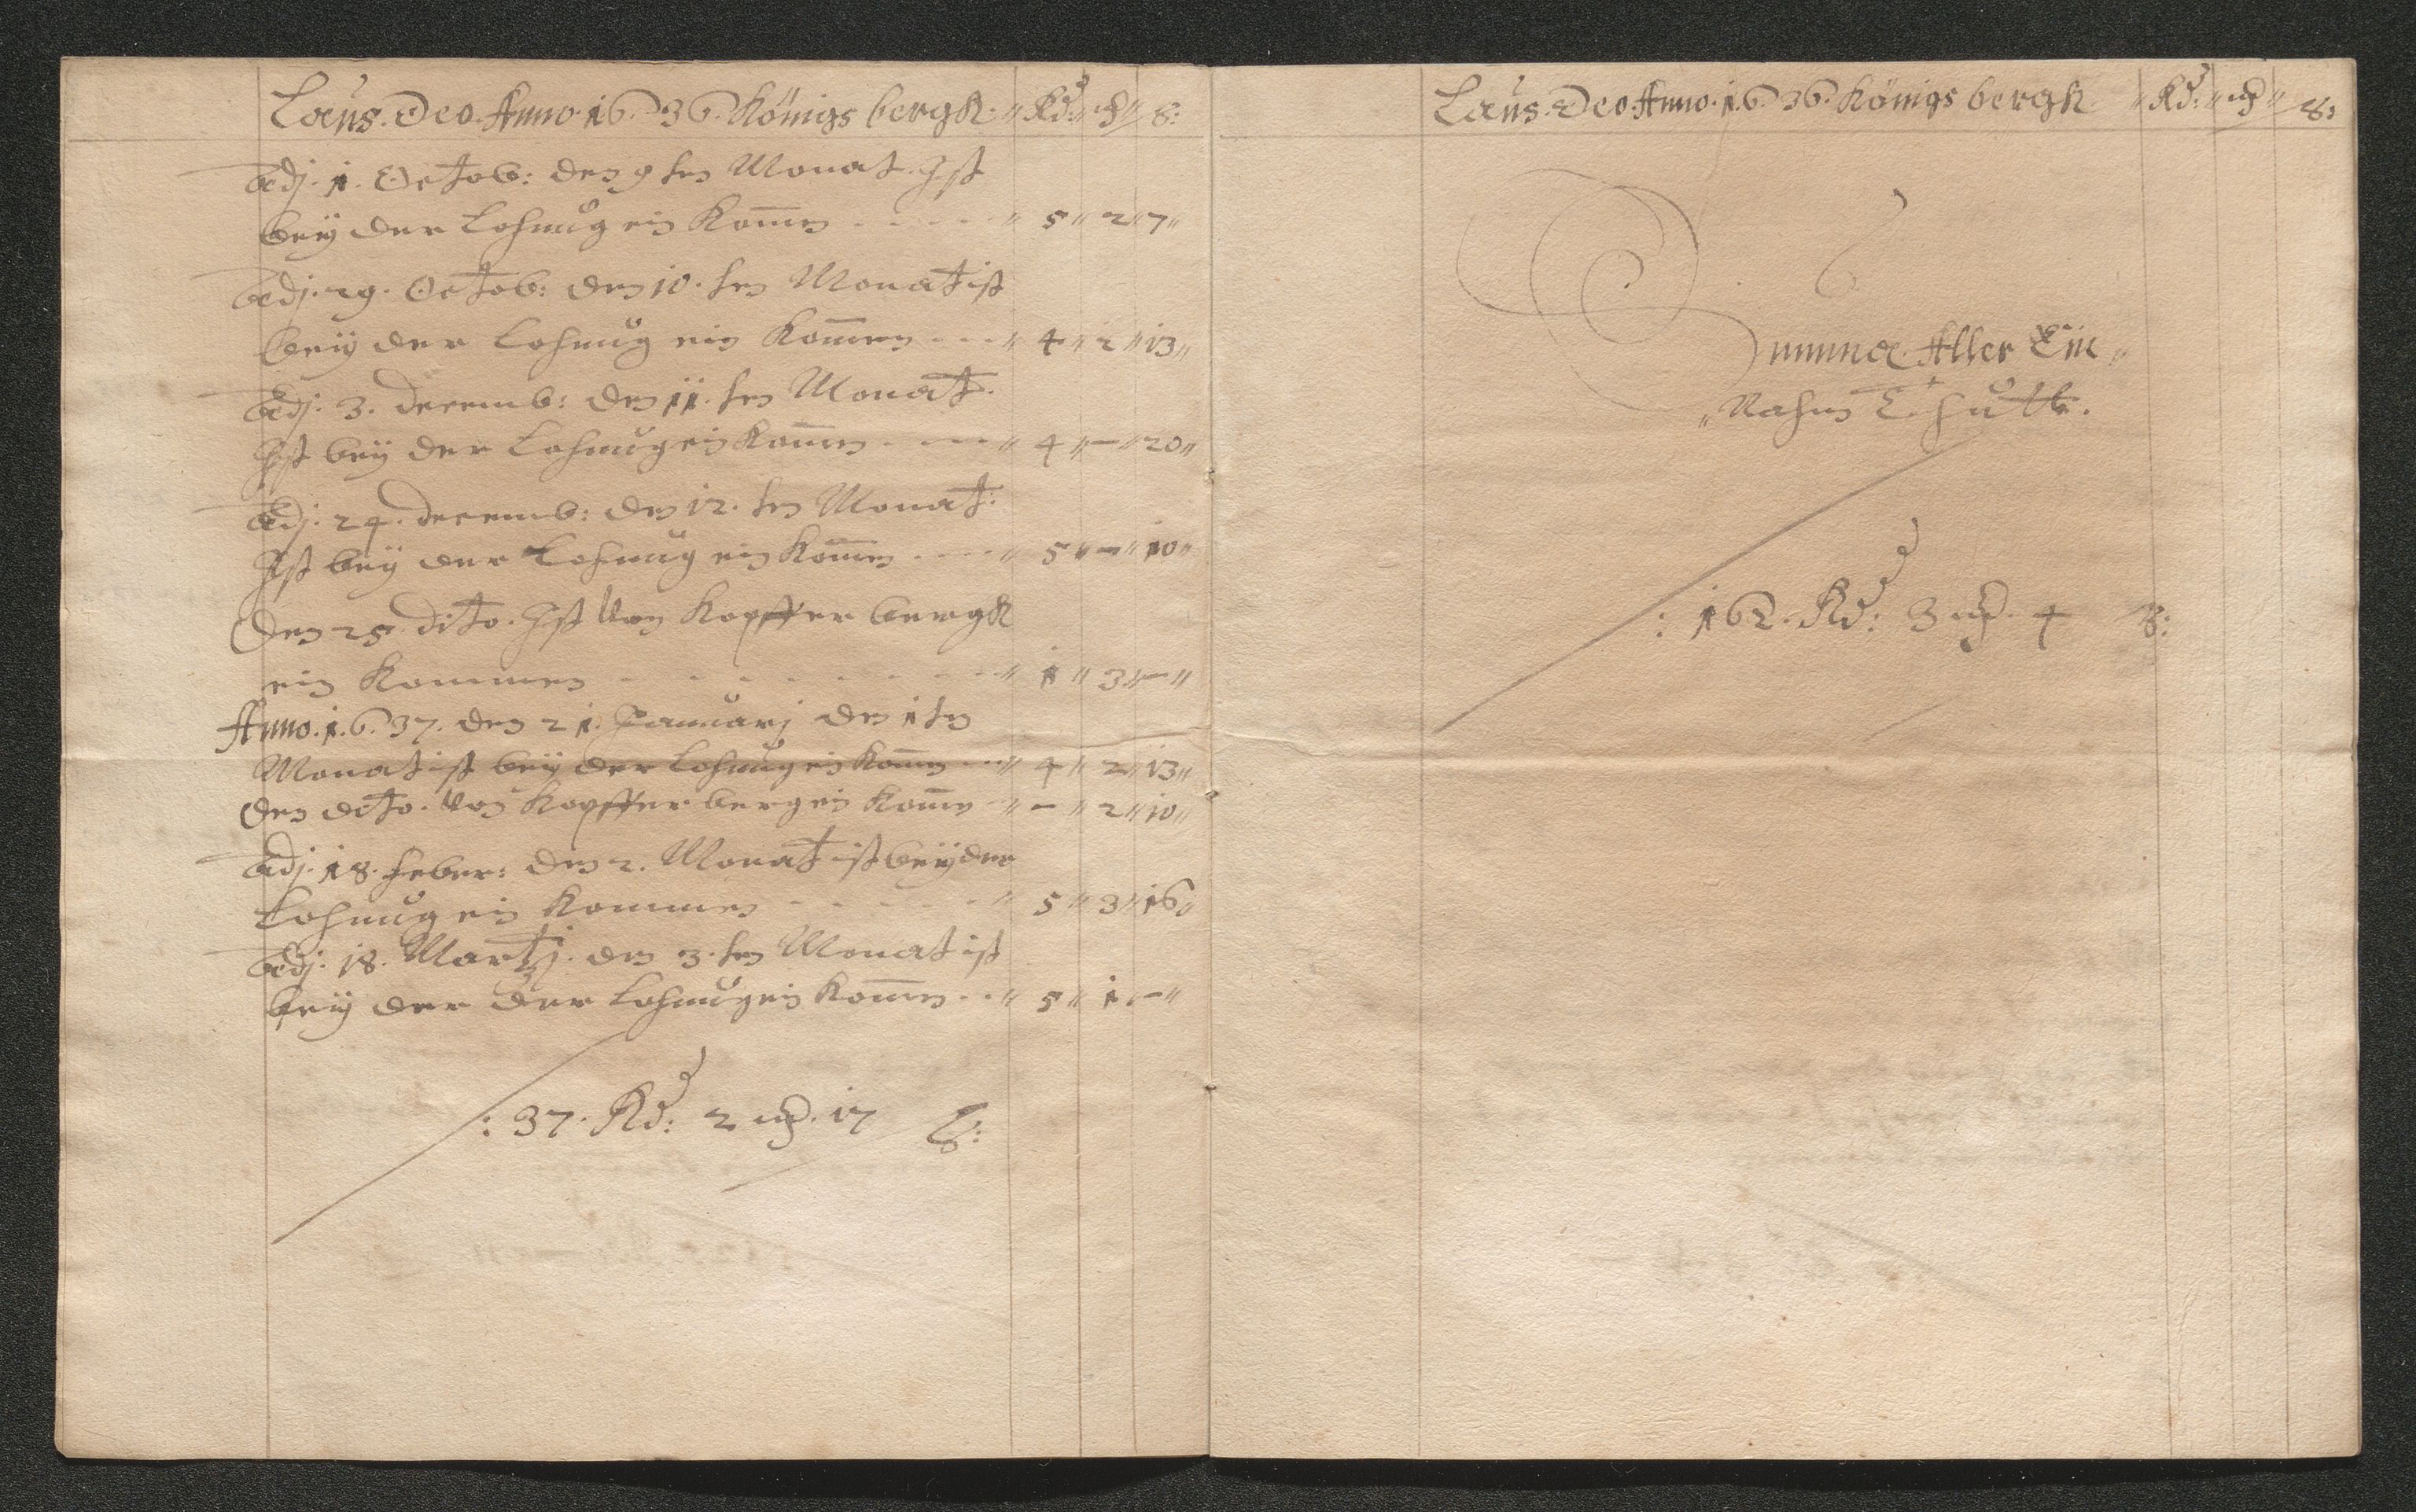 Laus. Deo. Anno. 1636. Königs bergk. " Rd: " mþ " ß:
Adj. 1. Octob: den 9 ten Monat. Ist
beÿ der Lohnŭg ein Komen - - - - - " 5 " 2 " 7 "
Adj. 29. Octob: den 10. ten Monat ist
beÿ der Lohnŭg ein Komen - - - " 4 " 2 " 13 "
Adj. 3. Decemb: den 11. ten Monat.
Ist beÿ der Lohnŭg ein Komen - - - - " 4 " - " 20 "
Adj. 24. Decemb: den 12. ten Monat:
Ist beÿ der Lohnŭg ein Komen - - - - " 5 " - " 10 "
Den 25. dito. Ist Von Kopffer bergk
ein Kommen - - - - - - - - - " 1 " 3 " - "
Anno. 1.6.37. den 21. Januarj den 1 ten
Monat ist beÿ der Lohnŭg ein Komen - - " 4 " 2 " 13 "
Den dito. Von Kopffer berg ein Komen - " - " 2 " 10 "
Adj. 18. Feber: den 2. Monat ist beÿ der
Lohnŭg ein Kommen - - - - - - " 5 " 3 " 16 "
Adj. 18. Martzj. den 3. ten Monat ist
beÿ der der Lohnŭg ein Komen - - " 5 " 1 " - "
: 37. Rd: 2 mþ. 17 ß:
Laus. Deo. Anno. 1.6.36. Königs bergk. " Rd: " mþ " ß:
Summa. Aller Ein "
" Nahm Thŭtt.
: 162. Rd: 3 mþ. 4 ß: